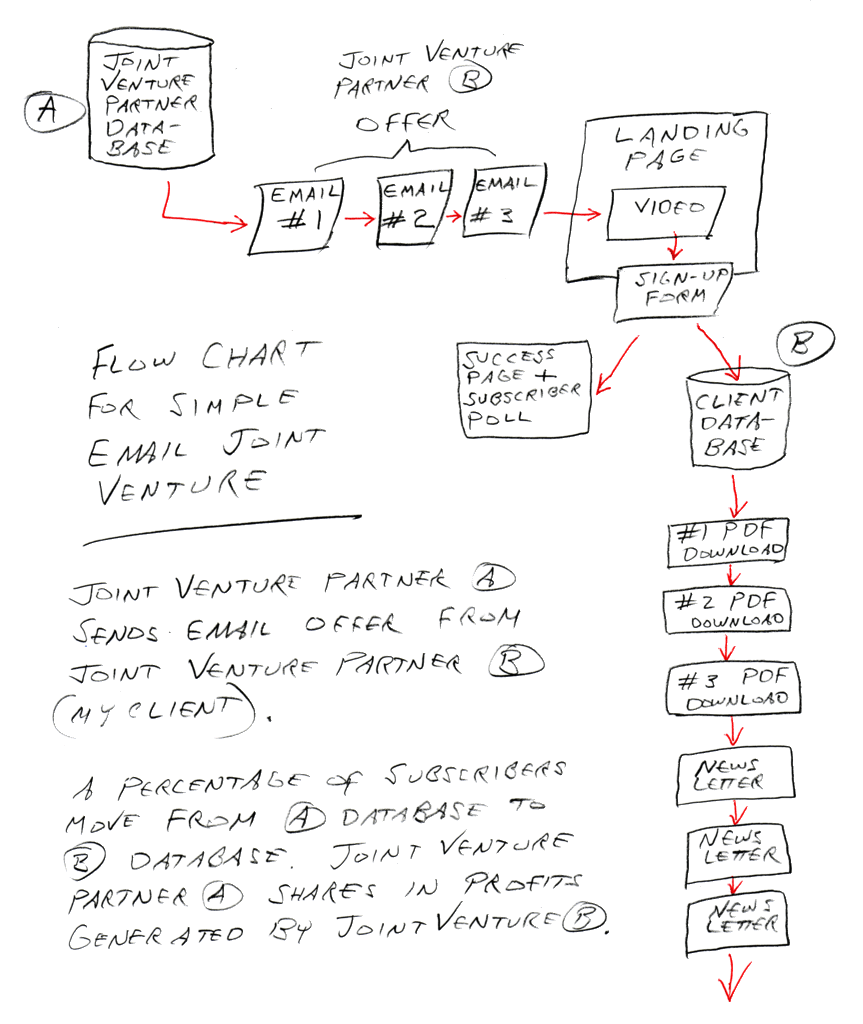 JOINT
VENTURE
PARTNER
DATA-
BASE
A
JOINT VENTURE
PARTNER B
OFFER
EMAIL
#1
EMAIL
#2
EMAIL
#3
LANDING
PAGE
VIDEO
SIGN-UP
FORM
SUCCESS
PAGE +
SUBSCRIBER
POLL
B
CLIENT
DATA-
BASE
#1 PDF
DOWNLOAD
#2 PDF
DOWNLOAD
#3 PDF
DOWNLOAD
NEWS
LETTER
NEWS
LETTER
NEWS
LETTER
FLOW CHART
FOR SIMPLE
EMAIL JOINT
VENTURE
JOINT VENTURE PARTNER A
SENDS EMAIL OFFER FROM
JOINT VENTURE PARTNER B
(MY CLIENT).
A PERCENTAGE OF SUBSCRIBERS
MOVE FROM A DATABASE TO
B DATABASE. JOINT VENTURE
PARTNER A SHARES IN PROFITS
GENERATED BY JOINT VENTURE B.